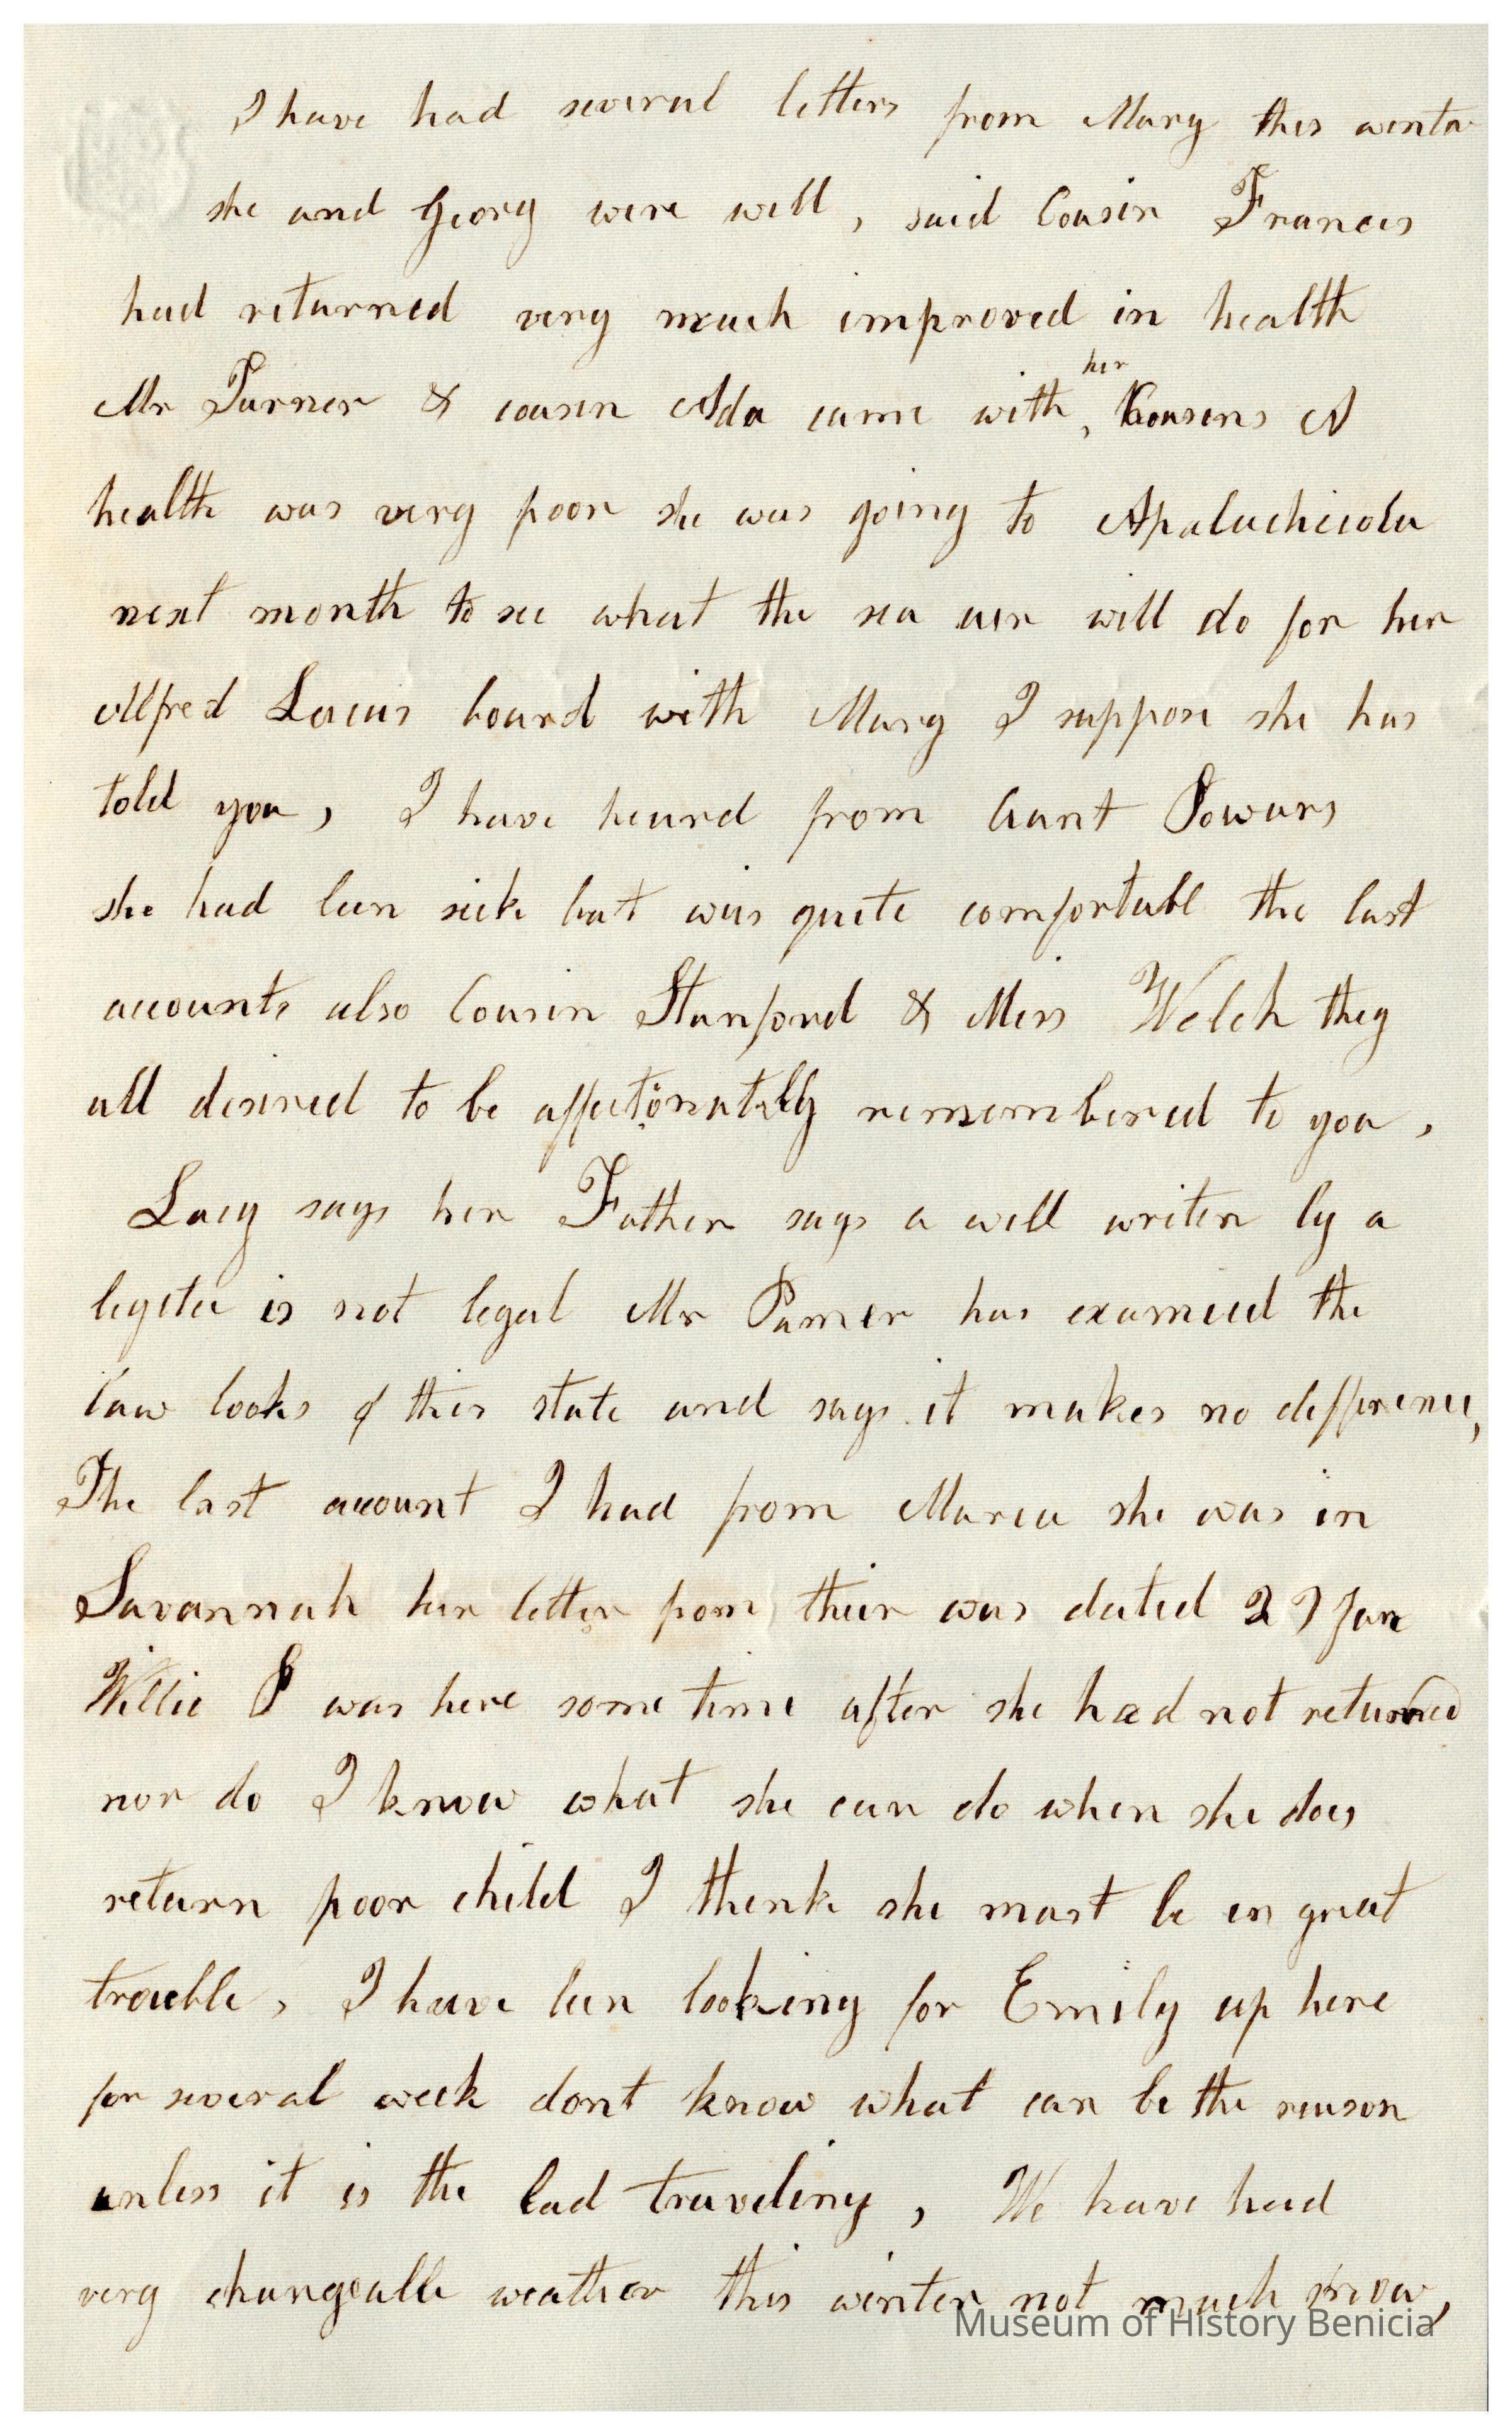 I have had several letters from Mary this winter
she and Georg were well, said Cousin Frances
had returned very much improved in health
her
Mr Turner & cousin Ada came with, Cousens A
health was very poor she was going to Apaluchicola
next month to see what the sea air will do for her
Alfred Lucius board with Mary I suppose she has
told you, I have heard from Aunt Powars
she had been sick but was quite comfortabl the last
accounts also Cousin Stanford & Miss Welch they
all desired to be affectionatelly remembered to you,
Lucy says her Father says a will writen by a
legetee is not legal Mr has examined the
law books of this state and says it makes no difference,
The last account I had from Maria she was in
Savannah her letter from their was dated 27 Jan
Willie P was here some time after she had not returned
nor do I know what she can do when she does
return poor child I think she must be in great
trouble, I have been looking for Emily up here
for several week dont know what can be the reason
unless it is the bad traveling, We have had
very changeable weather this winter not much snow,
Museum of History Benicia